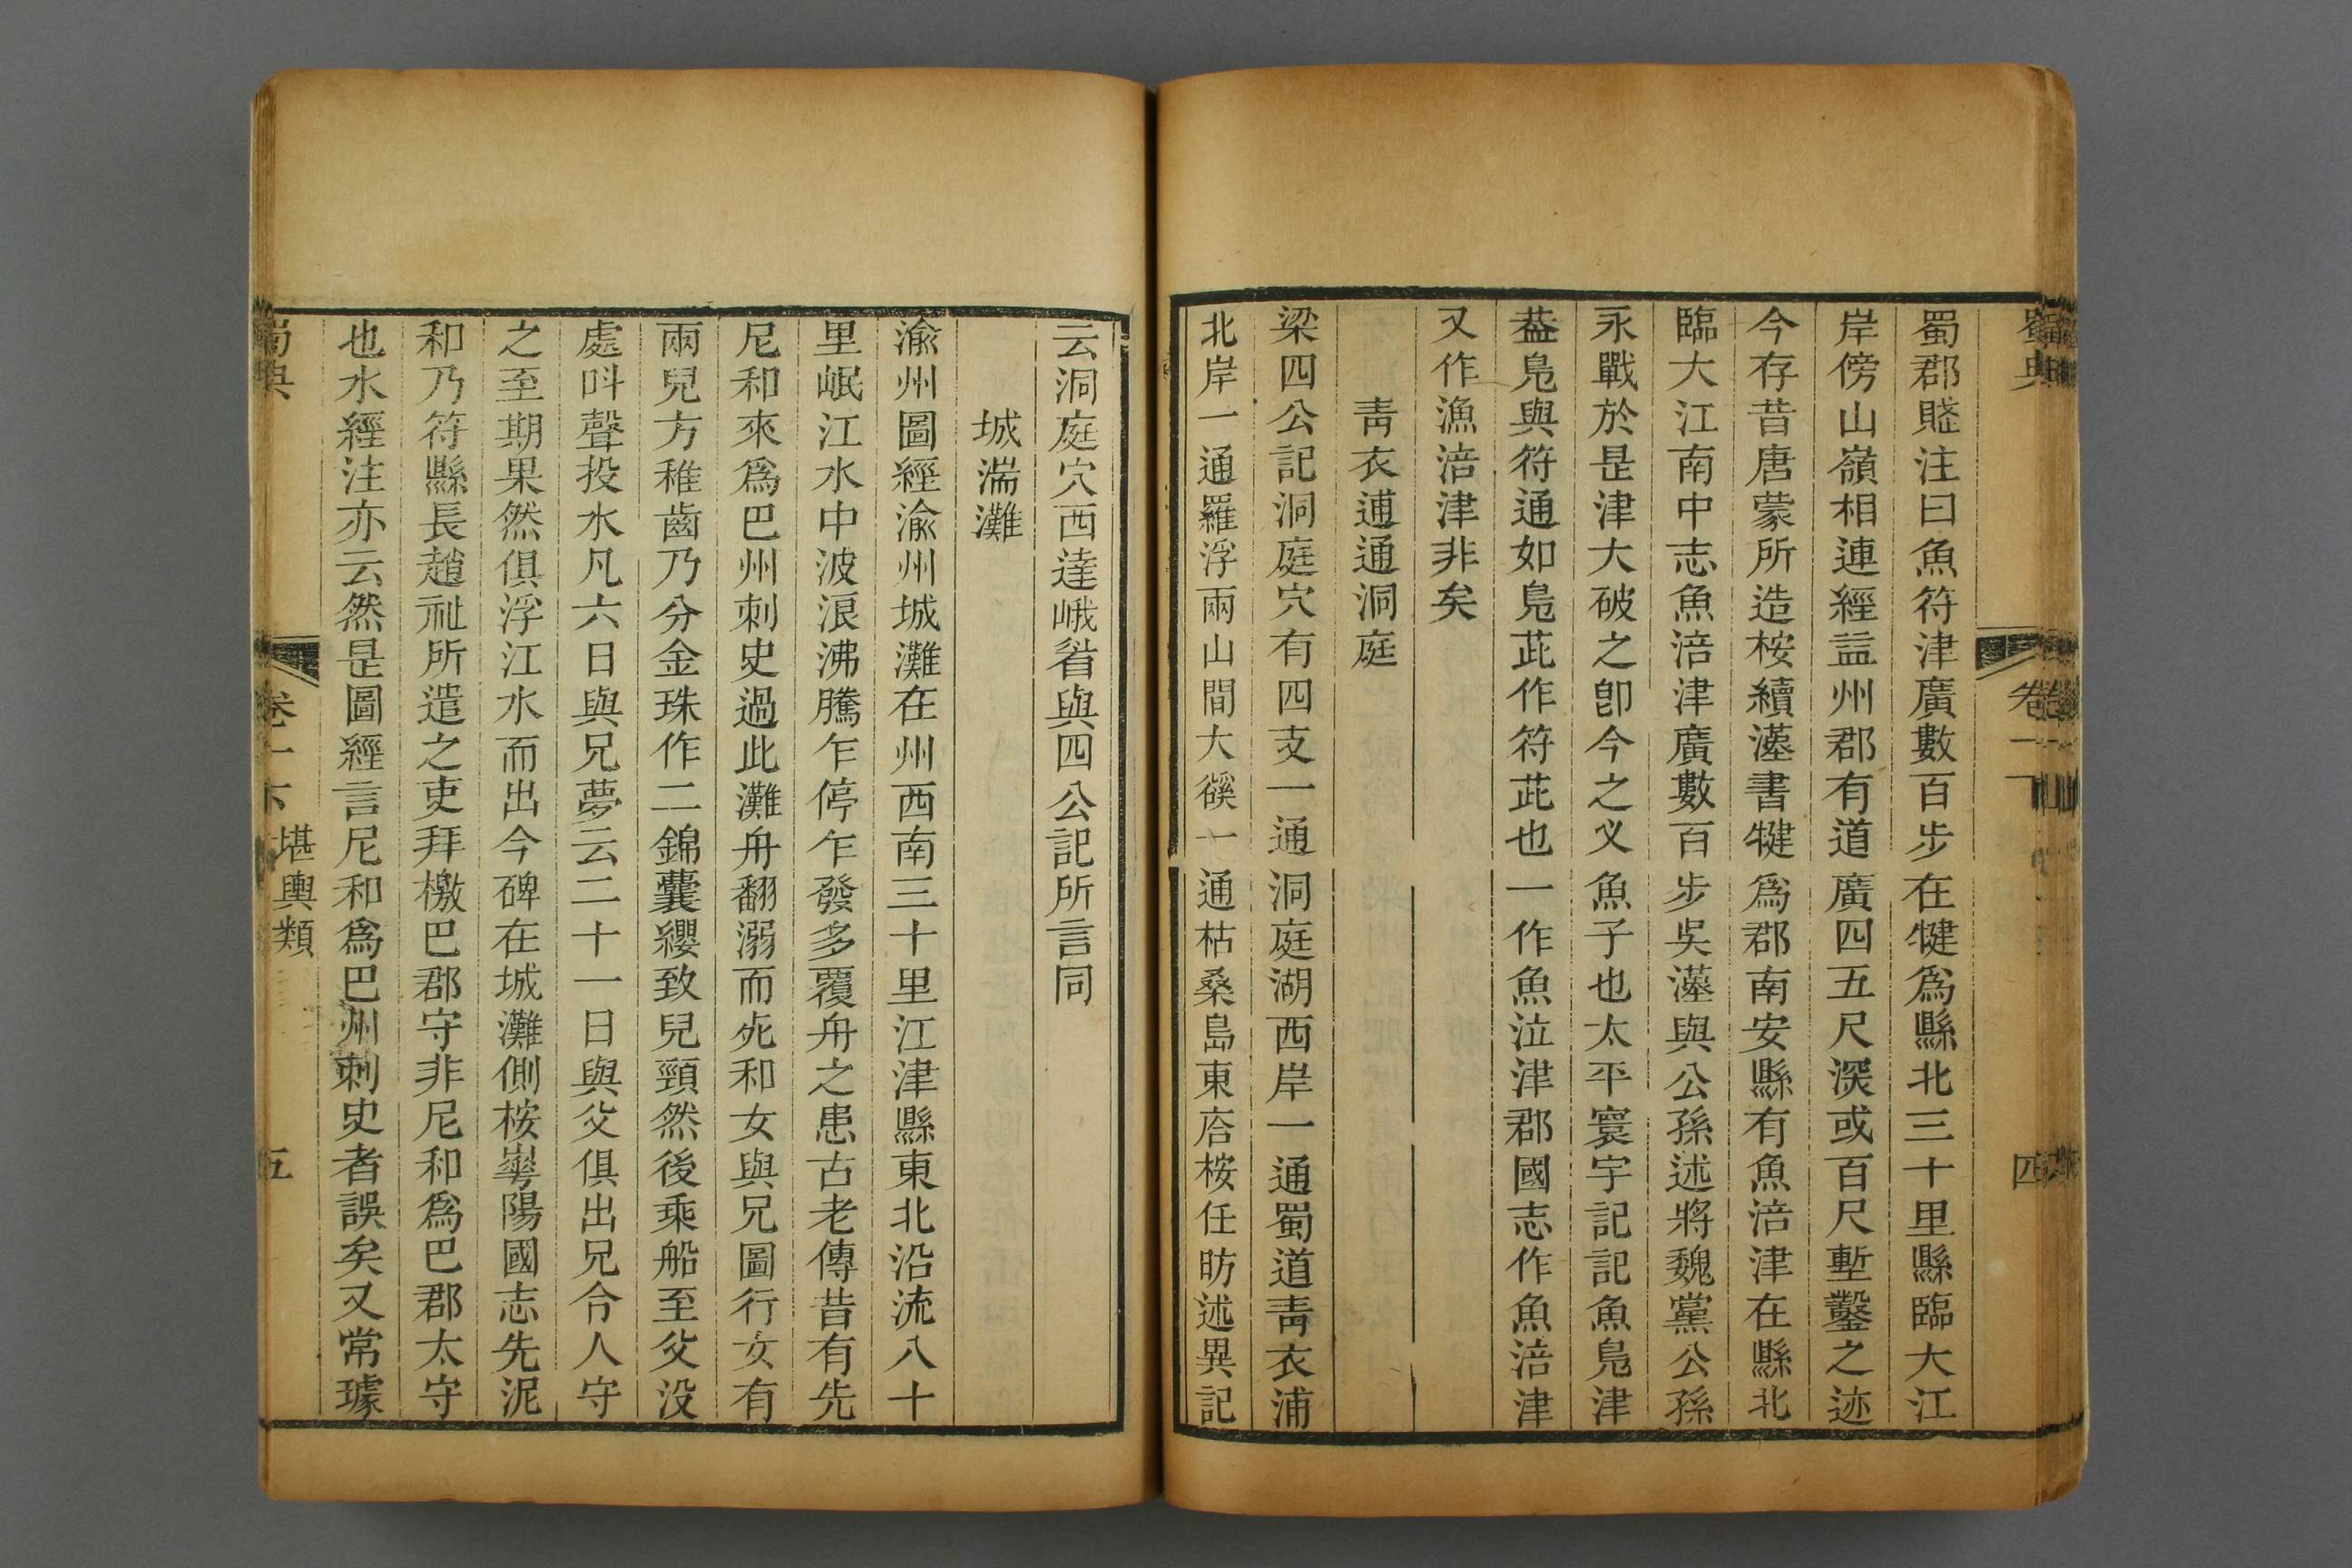 蜀典
卷一下
四
蜀郡賤注曰魚符津廣數百步在犍爲縣北三十里縣臨大江
岸傍山嶺相連經益州郡有道廣四五尺深或百尺塹鑿之迹
今存昔唐蒙所造桉續漢書犍爲郡南安縣有魚涪津在縣北
臨大江南中志魚涪津廣數百步吳漢與公孫述將魏黨公孫
永戰於是津大破之卽今之义魚子也太平寰宇記記魚鳧津
葢鳧與符通如鳧茈作符茈也一作魚泣津郡國志作魚涪津
又作漁涪津非矣
靑衣逋通洞庭
梁四公記洞庭穴有四支一通洞庭湖西岸一通蜀道靑衣浦
北岸一通羅浮兩山間大谿一通枯桑島東㟁桉任昉述異記
云洞庭穴西達峨眉與四公記所言同
城湍灘
渝州圖經渝州城灘在州西南三十里江津縣東北沿流八十
里岷江水中波浪沸騰乍停乍發多覆舟之患古老傳昔有先
尼和來爲巴州刺史過此灘舟翻溺而死和女與兄圖行女有
兩兒方稚齒乃分金珠作二錦囊纓致兒頸然後乘船至父没
處呌聲投水凡六日與兄夢云二十一日與父俱出兄令人守
之至期果然俱浮江水而出今碑在城灘側桉崋陽國志先泥
和乃符縣長趙祉所遣之吏拜檄巴郡守非尼和爲巴郡太守
也水經注亦云然是圖經言尼和爲巴州刺史者誤矣又常璩
蜀典
卷一下
堪輿類
五